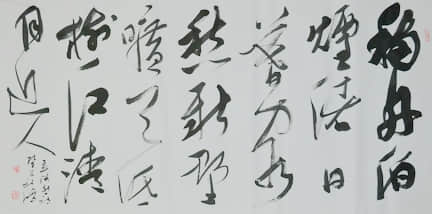 移舟泊
煙渚日
暮客
愁新野
曠天低
樹江清
月近人